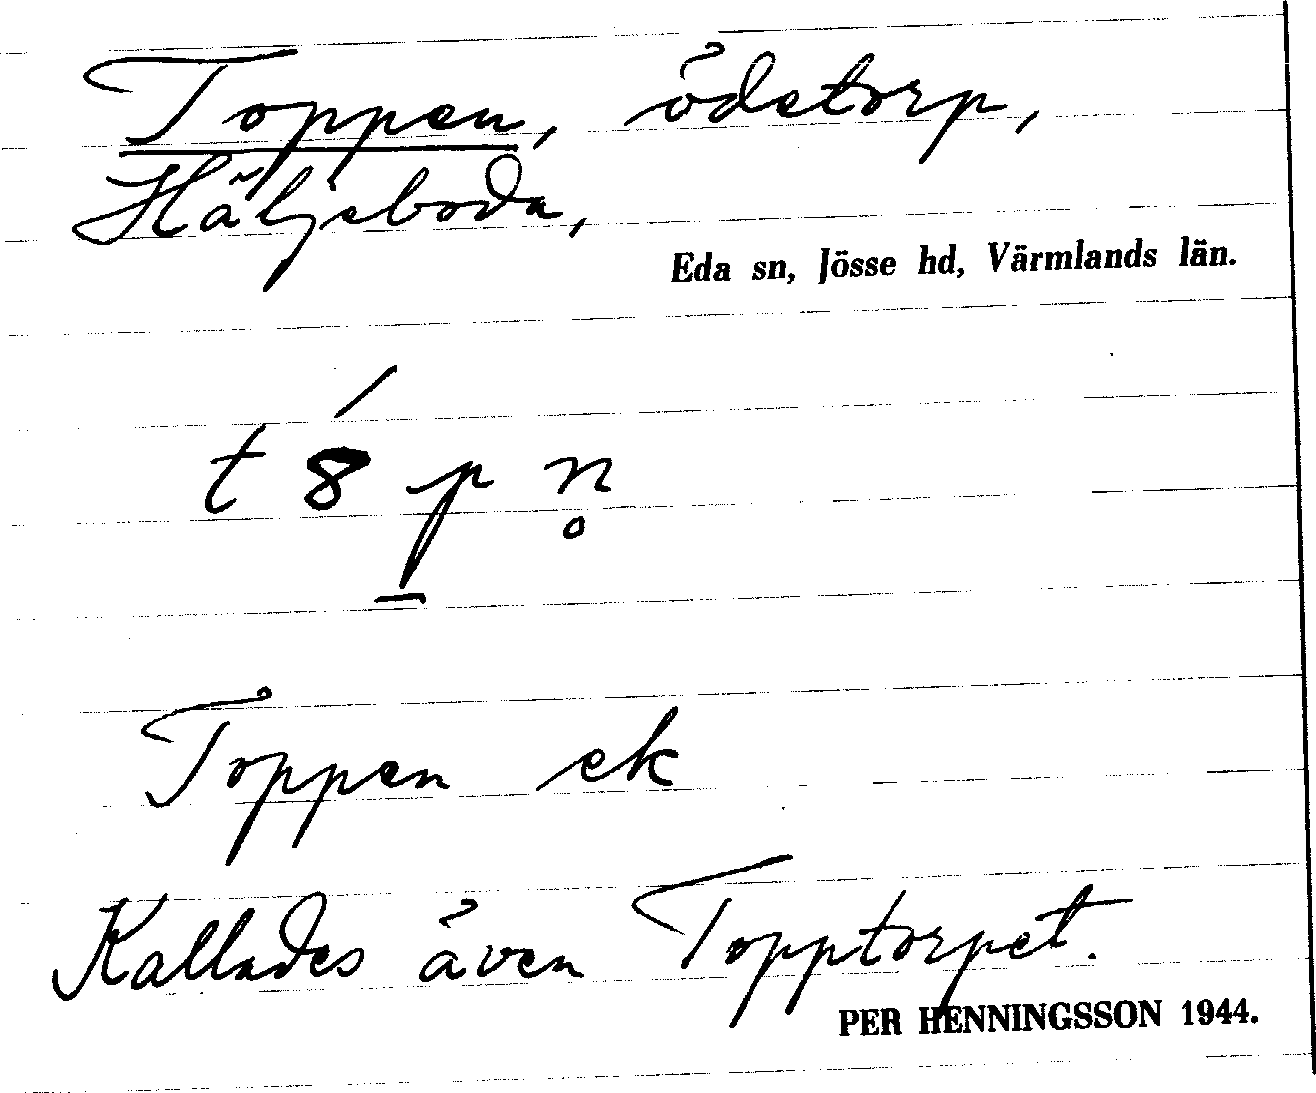 Toppen, ödetorp,
Häljeboda,
Eda sn, Jösse hd, Värmlands län.
t 8́ p̲ n̥
Toppen ek
Kallades även Topptorpet.
PER HENNINGSSON 1944.